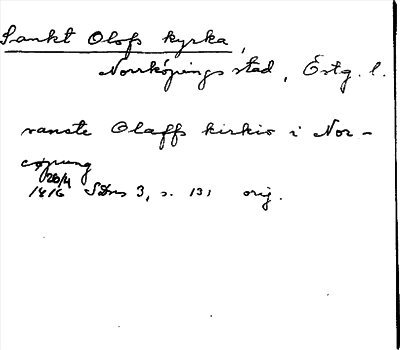 Sankt Olofs kyrka,
Norrköpings stad, Östg. l.
vanste Olaffs kirkio i Nor-
cøpung
20/4
1416 SDns 3, s. 131 orig.